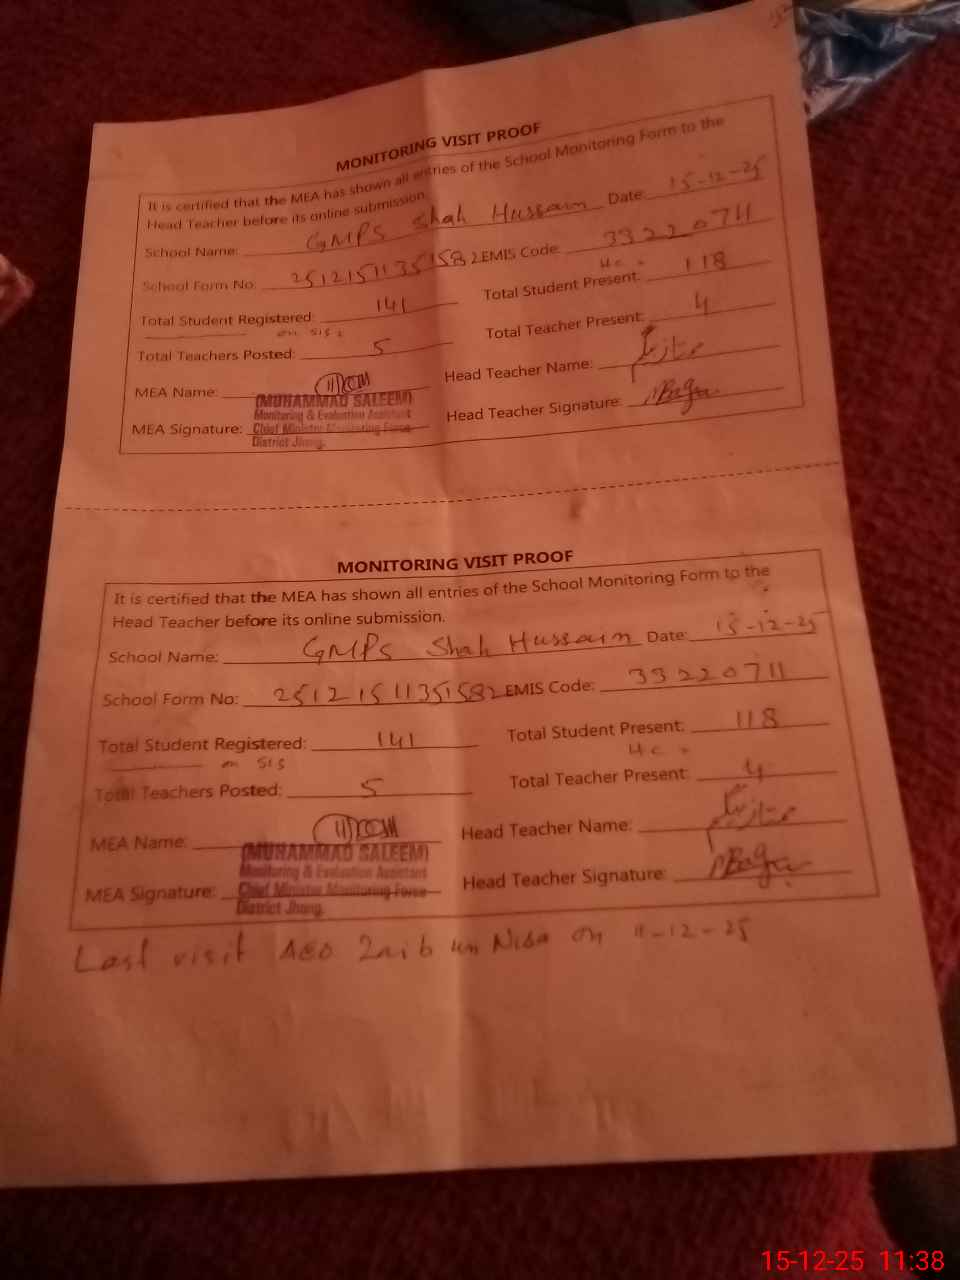 MONITORING VISIT PROOF
It is certified that the MEA has shown all entries of the School Monitoring Form to the
Head Teacher before its online submission.
School Name: GMPS Shah Hussain Date: 15-12-25
School Form No: 25121511351582 EMIS Code: 33220711
Total Student Registered: 141 Total Student Present: 118
on SIS
Total Teachers Posted: 5 Total Teacher Present: 4
MEA Name: Head Teacher Name:
(MUHAMMAD SALEEM)
Monitoring & Evaluation Assistant
MEA Signature: Chief Minister Monitoring Force Head Teacher Signature:
District Jhang.
MONITORING VISIT PROOF
It is certified that the MEA has shown all entries of the School Monitoring Form to the
Head Teacher before its online submission.
School Name: GMPS Shah Hussain Date: 15-12-25
School Form No: 25121511351582 EMIS Code: 33220711
Total Student Registered: 141 Total Student Present: 118
on SIS
Total Teachers Posted: 5 Total Teacher Present: 4
MEA Name: Head Teacher Name:
(MUHAMMAD SALEEM)
Monitoring & Evaluation Assistant
MEA Signature: Chief Minister Monitoring Force Head Teacher Signature:
District Jhang.
Last visit AEO Zaib un Nisa on 11-12-25
15-12-25 11:38